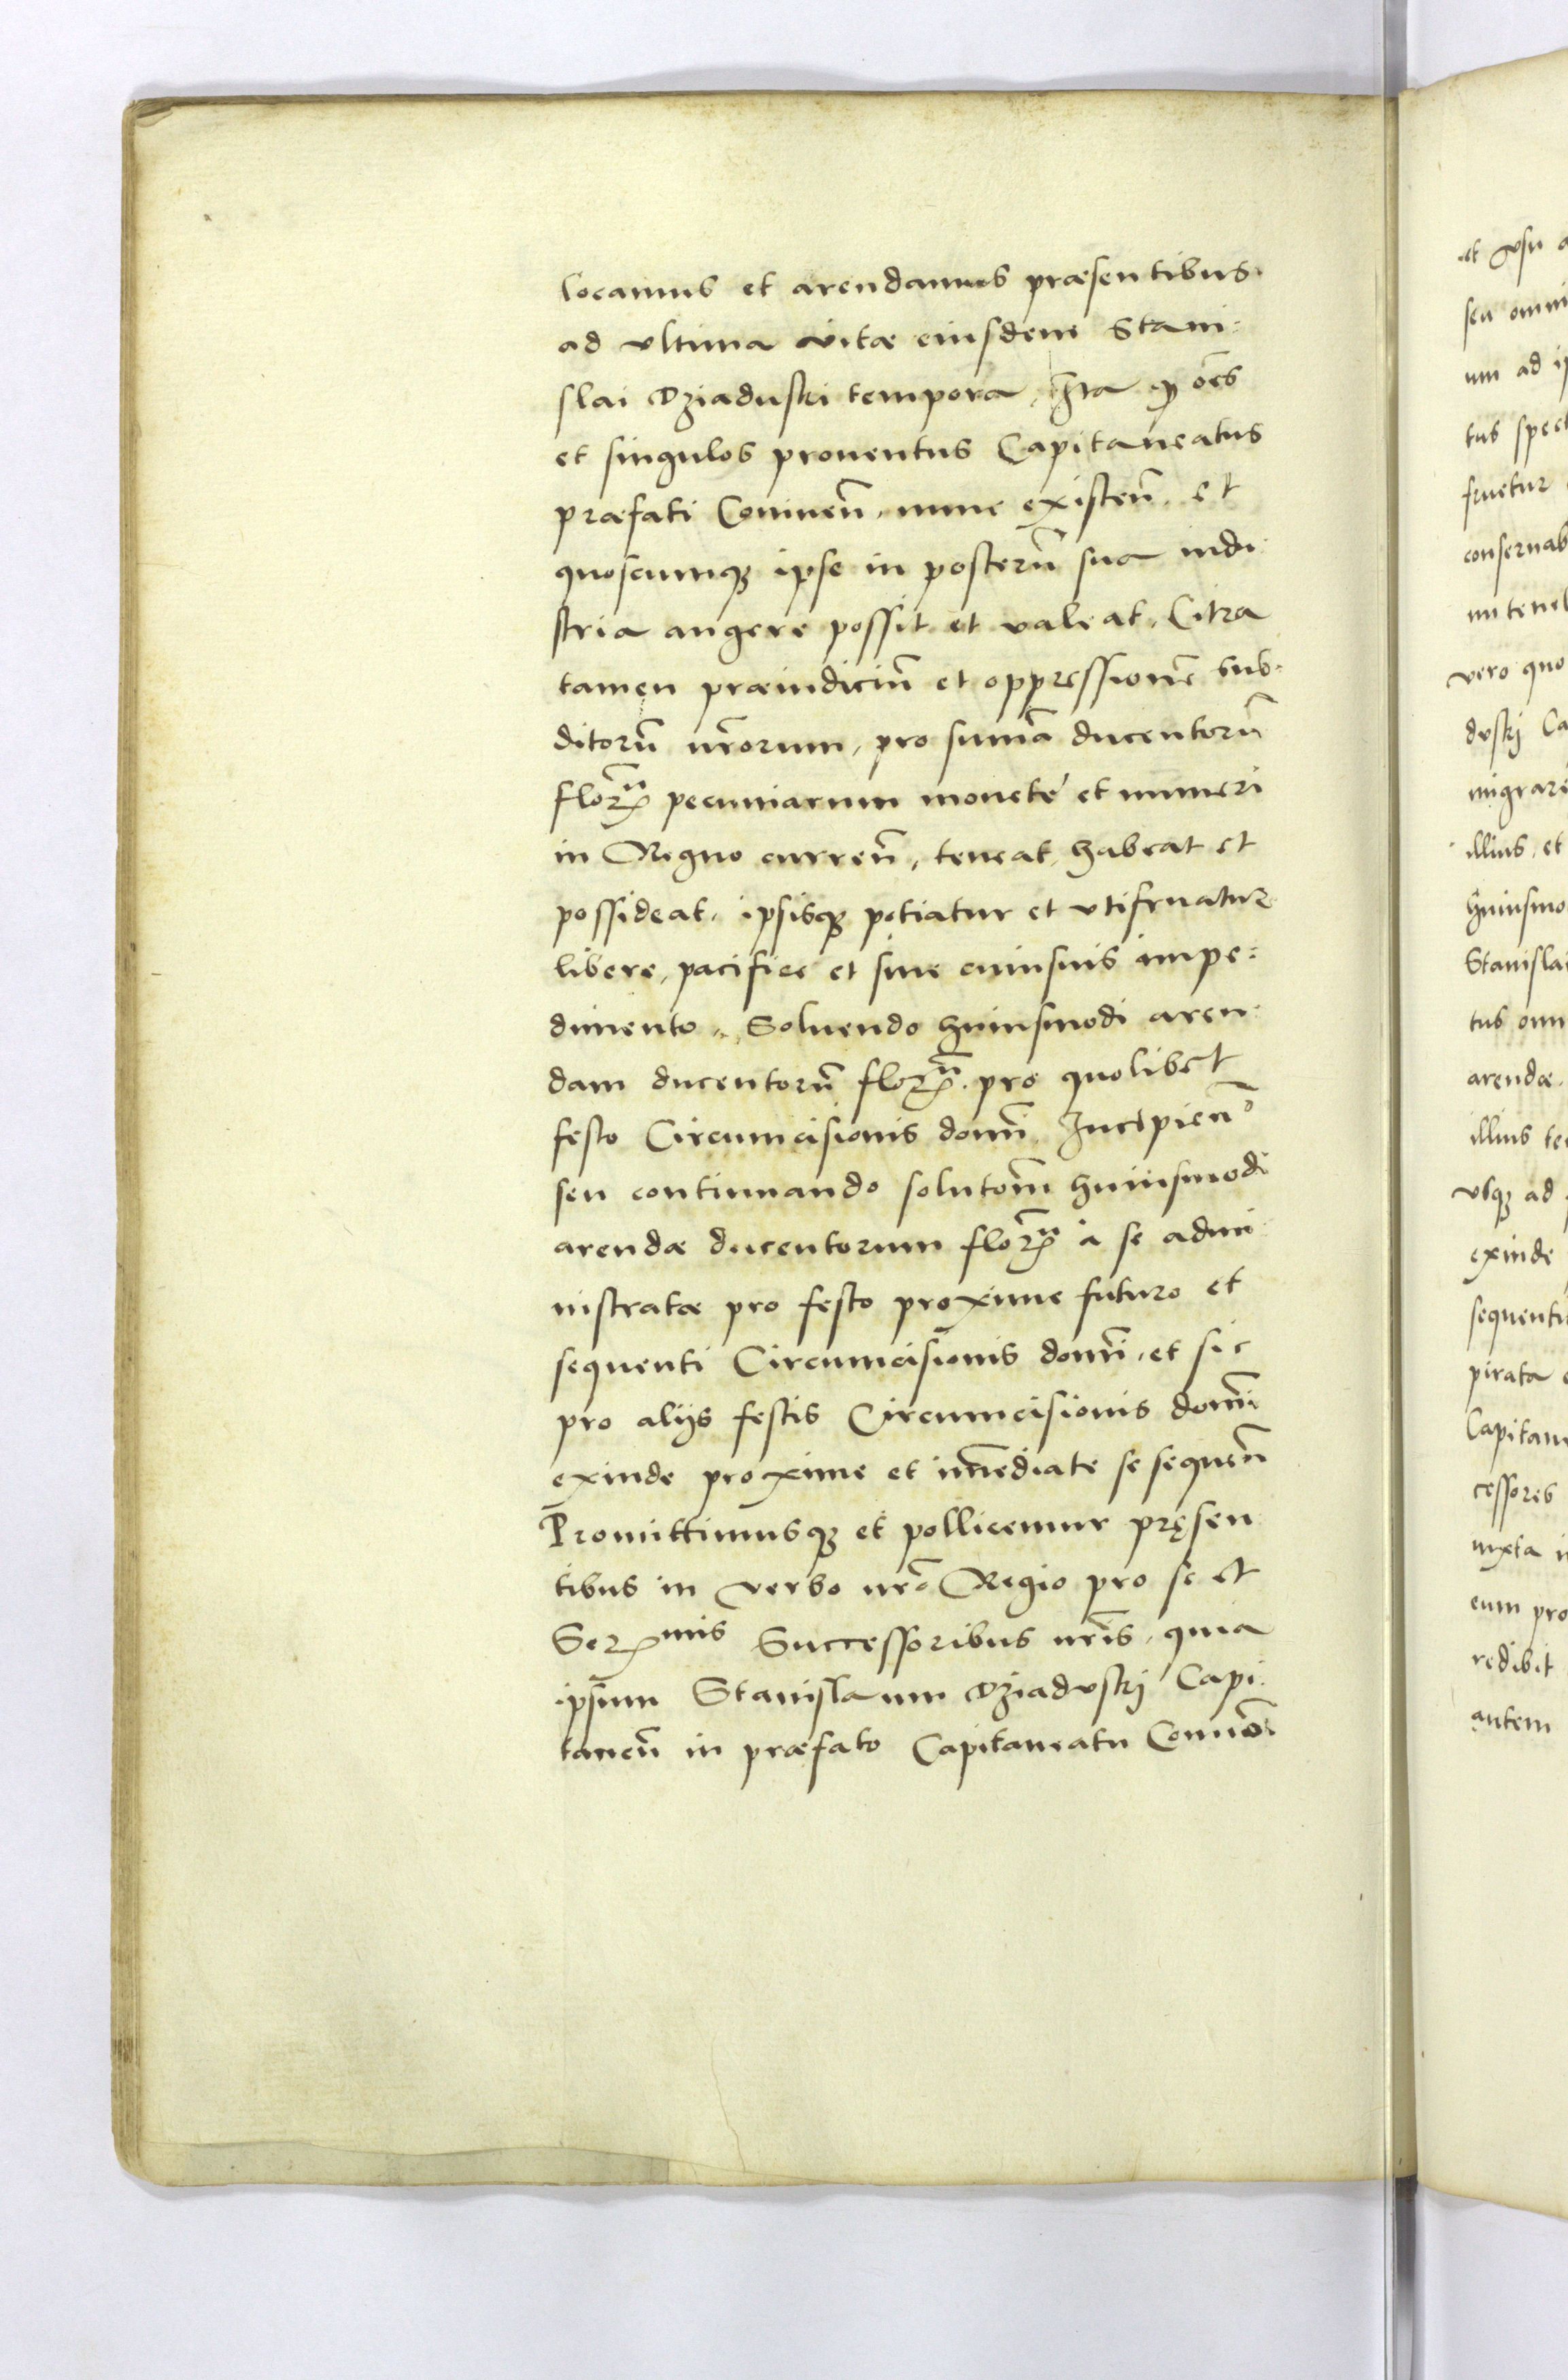 locamus et arendamus præsentibus
ad vltima vitæ eiusdem Stani:
slai Dziaduski tempora, Ita ꝙ oēs
et singulos prouentus Capitaneatus
præfati Coninen̄. nunc existen̄. et
quoscumqȝ ipse in posterū sua indu
stria augere possit et valeat. Citra
tamen præiudiciū et oppressionē sub:
ditorū nr̄orum, pro sumā ducentorū
florꝝ pecuniarum moneté et numeri
in Regno curren̄, teneat, habeat et
possideat, ipsisqȝ potiatur et vtifruatur
libere, pacifice et sine cuiusuis impe:
dimento. Soluendo huiusmodi aren:
dam ducentorū florꝝ. pro quolibet
festo Circumcisionis domī. Incipien̄o
seu continuando solutom̄ huiusmodi
arendæ ducentorum florꝝ à se admi
nistratæ pro festo proxime futuro et
sequenti Circumcisionis domī, et sic
pro alijs festis Circumcisionis domī
exinde proxime et im̄ediate se sequen̄
Promittimusqȝ et pollicemur pręsen
tibus in verbo nrō Regio pro se et
Serꝫmis Successoribus nrīs, quia
ipsum Stanislaum Dziadvskj Capi
taneū in præfato Capitaneatu Coninēn
et vsu
seu omni
um ad
tus spect
fruetur
conseruab
mi teneb
vero quo
dvskj Ca
migrare
illius, et
huiusmo
Stanislai
tus omn
arendæ.
illius te
vsqȝ ad
exinde
sequenti
pirata
Capitane
cessores
iuxta i
eum pro
redibit
autem